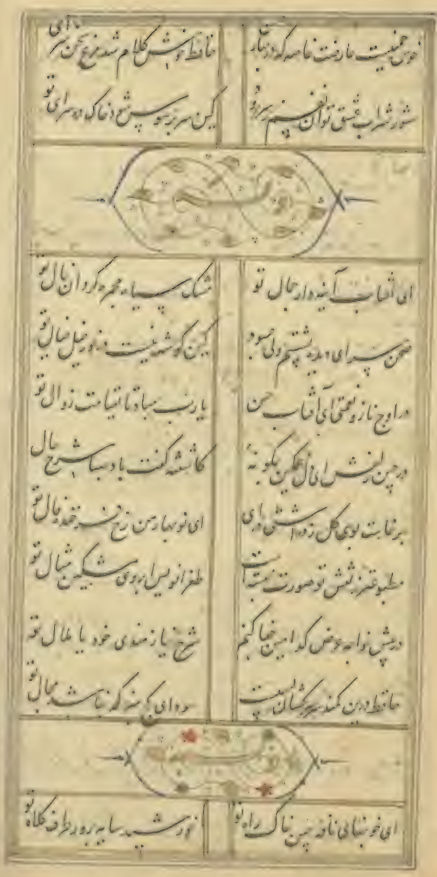 خوش چمنیست عارضت خاصه که در بهار حسن حافظ خوش کلام شد مرغ سخن سرای تو
شور شراب عشق تو آن نفسم رود ز سر کین سر پر هوس شود خاک در سرای تو
ای آفتاب آینه دار جمال تو مشک سیاه مجمره گردان خال تو
صحن سرای دیده بشستم ولی چه سود کین گوشه نیست در خور خیل خیال تو
در اوج ناز و نعمتی ای آفتاب حسن یارب مباد تا بقیامت زوال تو
در چین زلفش ای دل مسکین چگونه کاشفته گفت باد صبا شرح حال
برخاست بوی گل ز در آشتی درآی ای نوبهار من رخ فرخنده فال تو
مطبوعتر ز نقش تو صورت نبست طغرانویس ابروی مشکین مثال تو
در پیش خواجه عرض کدامین جفا کنم شرح نیازمندی خود یا ملال تو
حافظ درین کمند سر سرکشان بسیست سودای کج مپز که نباشد مجال تو
ای خونبهای نافه چین خاک راه تو خورشید سایه پرور طرف کلاه تو